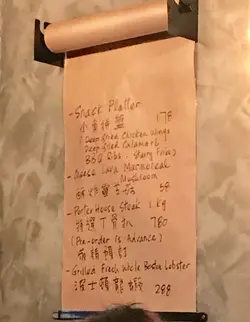 - Snack Platter
小食拼盤 178
(Deep Fried Chicken Wings
Deep Fried Calamari
BBQ Ribs, Curry Fries)
- Cheese Lava Portobello
Mushroom
58
- Porter House Steak 1 kg
特選丁骨扒 780
(Pre-order Is Advance)
需預訂
- Grilled Fresh Whole Boston Lobster
波士頓龍蝦 288